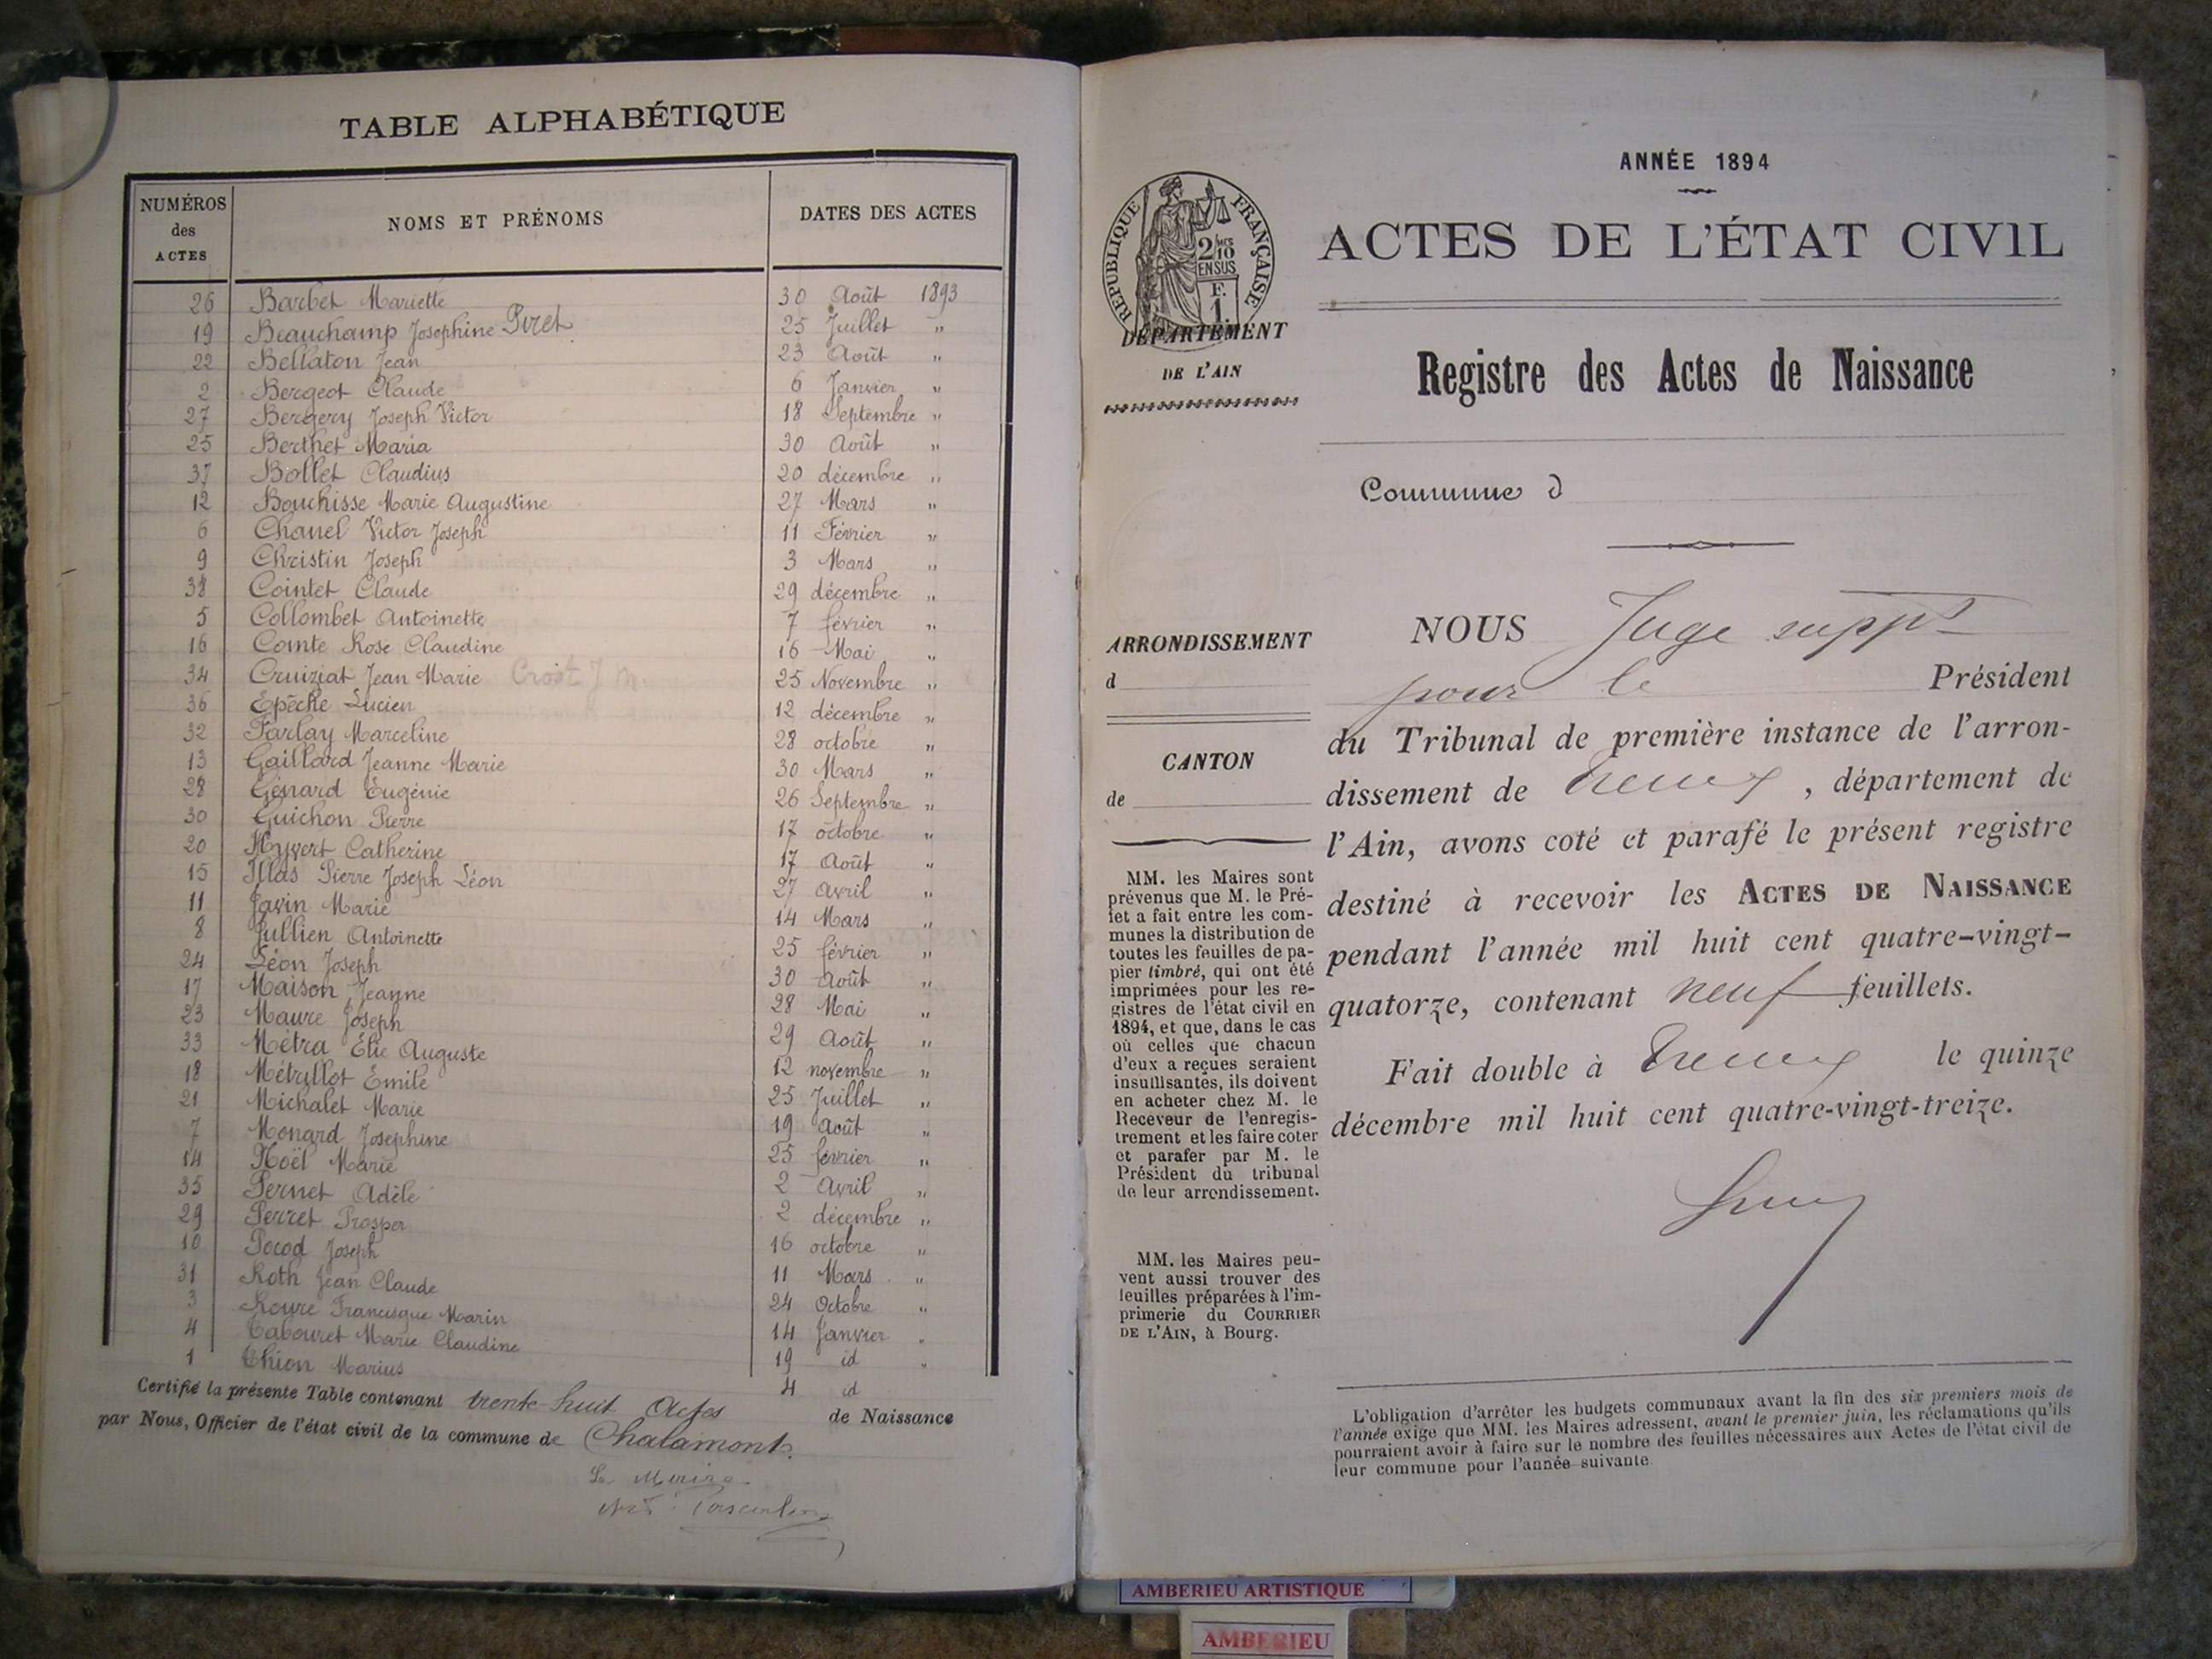 TABLE ALPHABÉTIQUE
NUMÉROS des ACTES NOMS ET PRÉNOMS DATES DES ACTES
26 Barbet Mariette 30 Août 1893
19 Beauchamp Josephine Piret 25 Juillet "
22 Bellaton Jean 23 Août "
2 Bergeot Claude 6 Janvier "
27 Bergery Joseph Victor 18 Septembre "
25 Berthet Maria 30 Août "
37 Bollet Claudius 20 décembre "
12 Bouchisse Marie Augustine 27 Mars "
6 Chanel Victor Joseph 11 Février "
9 Christin Joseph 3 Mars "
38 Cointet Claude 29 décembre "
5 Collombet Antoinette 7 février "
16 Comte Rose Claudine 16 Mai "
34 Cruiziat Jean Marie 25 Novembre "
36 Epêche Lucien 12 décembre "
32 Farlay Marceline 28 octobre "
13 Gaillard Jeanne Marie 30 Mars "
28 Génard Eugénie 26 Septembre "
30 Guichon Pierre 17 octobre "
20 Hyvert Catherine 17 Août "
15 Illas Pierre Joseph Léon 27 avril "
11 Javin Marie 14 Mars "
8 Jullien Antoinette 25 février "
24 Léon Joseph 30 Août "
17 Maison Jeanne 28 Mai "
23 Maure Joseph 29 Août "
33 Métra Élie Auguste 12 novembre "
18 Métrillot Émile 25 Juillet "
21 Michalet Marie 19 Août "
7 Monard Joséphine 25 février "
14 Noël Marie 2 Avril "
35 Pernet Adèle 2 décembre "
29 Perret Prosper 16 octobre "
10 Pocod Joseph 11 Mars "
31 Roth Jean Claude 24 Octobre "
3 Royre Francisque Marin 14 Janvier "
4 Tabouret Marie Claudine 19 id "
1 Thion Marius 4 id
Certifié la présente Table contenant trente-huit Actes de Naissance
par Nous, Officier de l'état civil de la commune de Chalamont.
Le Maire
ANNÉE 1894
ACTES DE L'ÉTAT CIVIL
RÉPUBLIQUE FRANÇAISE
2/10 EN SUS
F. 1
DÉPARTEMENT
DE L'AIN
Registre des Actes de Naissance
Commune d
ARRONDISSEMENT
d
CANTON
de
MM. les Maires sont
prévenus que M. le Pré-
fet a fait entre les com-
munes la distribution de
toutes les feuilles de pa-
pier timbré, qui ont été
imprimées pour les re-
gistres de l'état civil en
1894, et que, dans le cas
où celles que chacun
d'eux a reçues seraient
insuffisantes, ils doivent
en acheter chez M. le
Receveur de l'enregis-
trement et les faire coter
et parafer par M. le
Président du tribunal
de leur arrondissement.
MM. les Maires peu-
vent aussi trouver des
feuilles préparées à l'im-
primerie du COURRIER
DE L'AIN, à Bourg.
NOUS Juge suppt
pour le Président
du Tribunal de première instance de l'arron-
dissement de Trévoux, département de
l'Ain, avons coté et parafé le présent registre
destiné à recevoir les ACTES DE NAISSANCE
pendant l'année mil huit cent quatre-vingt-
quatorze, contenant neuf feuillets.
Fait double à Trévoux le quinze
décembre mil huit cent quatre-vingt-treize.
L'obligation d'arrêter les budgets communaux avant la fin des six premiers mois de
l'année exige que MM. les Maires adressent, avant le premier juin, les réclamations qu'ils
pourraient avoir à faire sur le nombre des feuilles nécessaires aux Actes de l'état civil de
leur commune pour l'année suivante.
AMBERIEU ARTISTIQUE
AMBERIEU